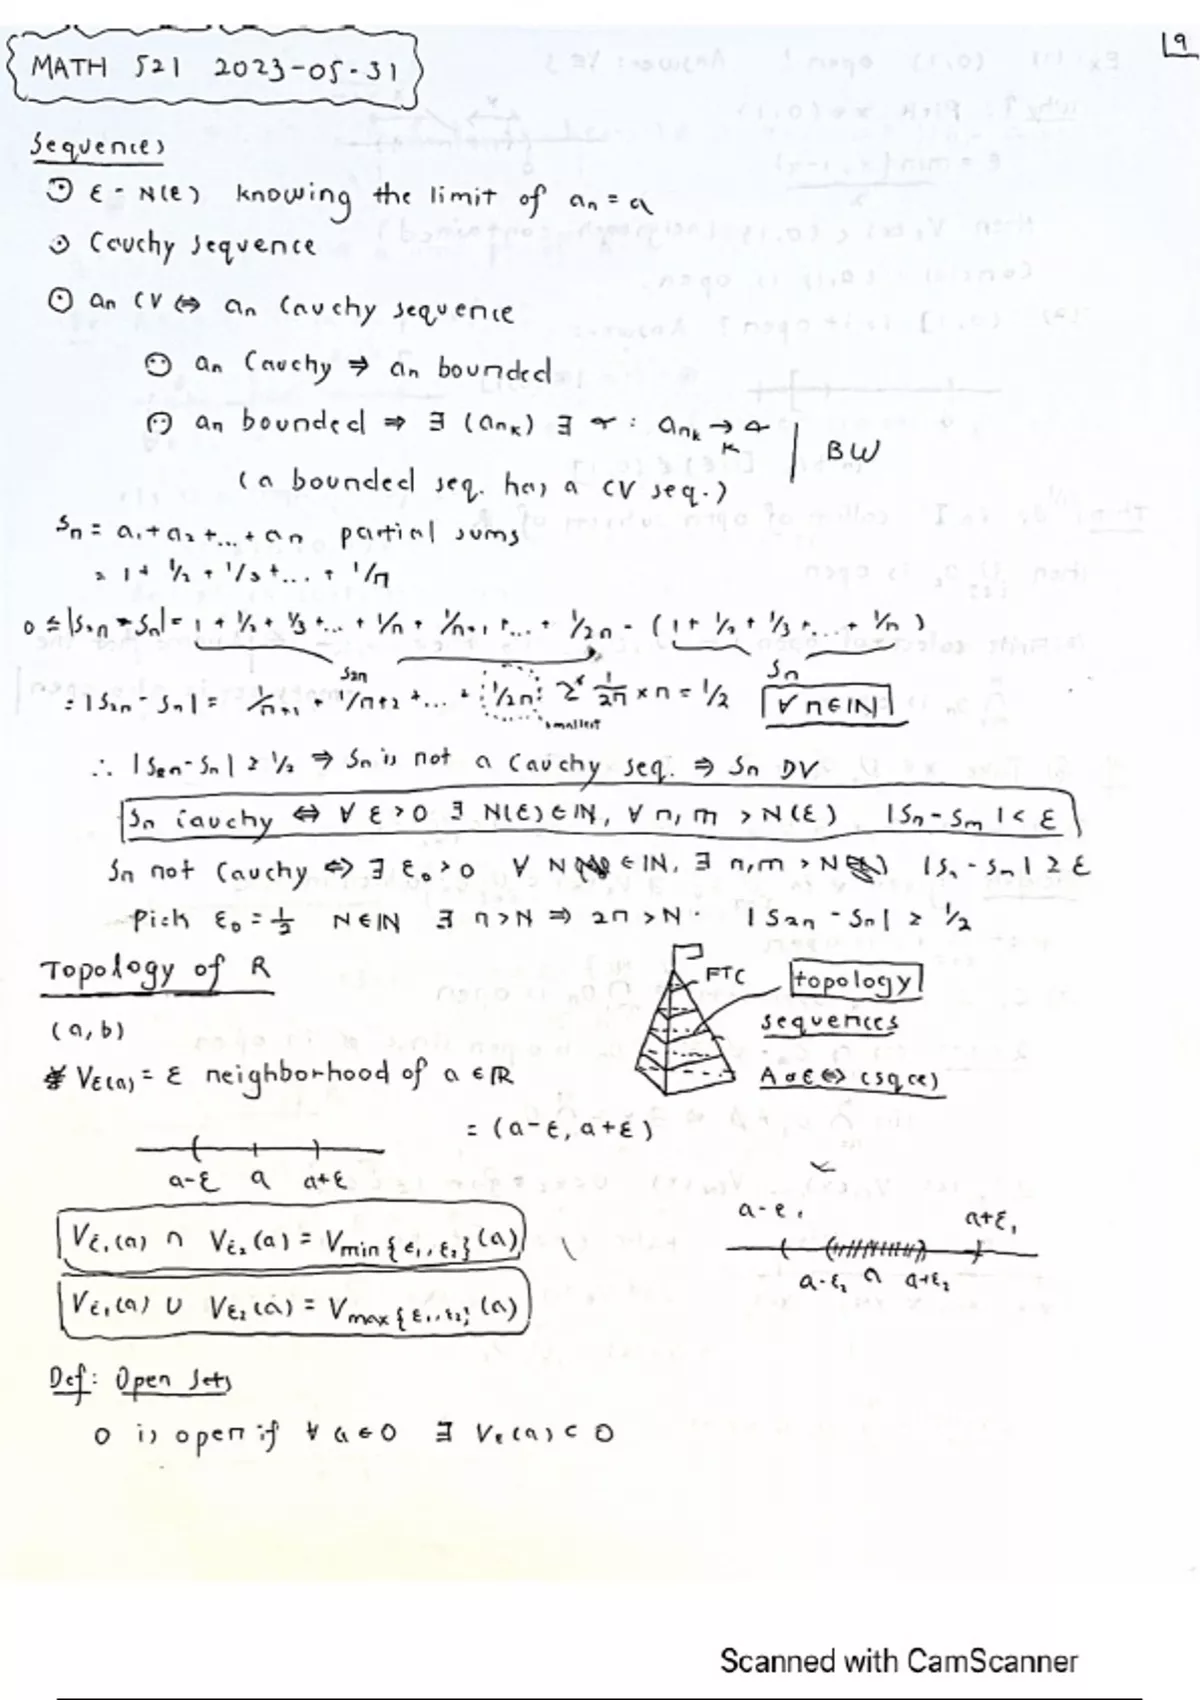 MATH 521 2023-05-31
19
Sequences
ε - N(ε) knowing the limit of an = a
Cauchy sequence
an CV ⇔ an Cauchy sequence
an Cauchy ⇒ an bounded
an bounded ⇒ ∃ (ank) ∃ α : ank → α
k
BW
(a bounded seq. has a CV seq.)
Sn = a1 + a2 + ... + an partial sums
= 1 + 1/2 + 1/3 + ... + 1/n
0 ≤ |S2n - Sn| = 1 + 1/2 + 1/3 + ... + 1/n + 1/n+1 + ... + 1/2n - (1 + 1/2 + 1/3 + ... + 1/n)
S2n Sn
= |S2n - Sn| = 1/n+1 + 1/n+2 + ... + 1/2n ≥ 1/2n × n = 1/2 ∀ n ∈ IN
smallest
∴ |S2n - Sn| ≥ 1/2 ⇒ Sn is not a Cauchy seq. ⇒ Sn DV
Sn Cauchy ⇔ ∀ ε > 0 ∃ N(ε) ∈ IN, ∀ n, m > N(ε) |Sn - Sm| < ε
Sn not Cauchy ⇔ ∃ ε0 > 0 ∀ N ∈ IN, ∃ n,m > N |Sn - Sm| ≥ ε
Pick ε0 = 1/2 N ∈ IN ∃ n > N ⇒ 2n > N · |S2n - Sn| ≥ 1/2
Topology of R
FTC
topology
sequences
(a, b)
Vε(a) = ε neighborhood of a ∈ IR
A of C ⇔ (sqce)
= (a-ε, a+ε)
a-ε a a+ε
a-ε1 a+ε1
a-ε2 a a+ε2
Vε1(a) ∩ Vε2(a) = Vmin{ε1,ε2}(a)
Vε1(a) ∪ Vε2(a) = Vmax{ε1,ε2}(a)
Def: Open Sets
O is open if ∀ a ∈ O ∃ Vε(a) ⊂ O
Scanned with CamScanner